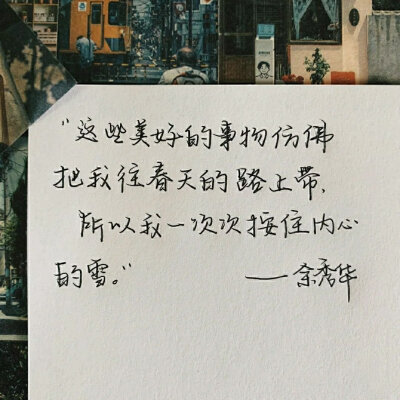 “这些美好的事物仿佛
把我往春天的路上带,
所以我一次次按住内心
的雪。”
——余秀华